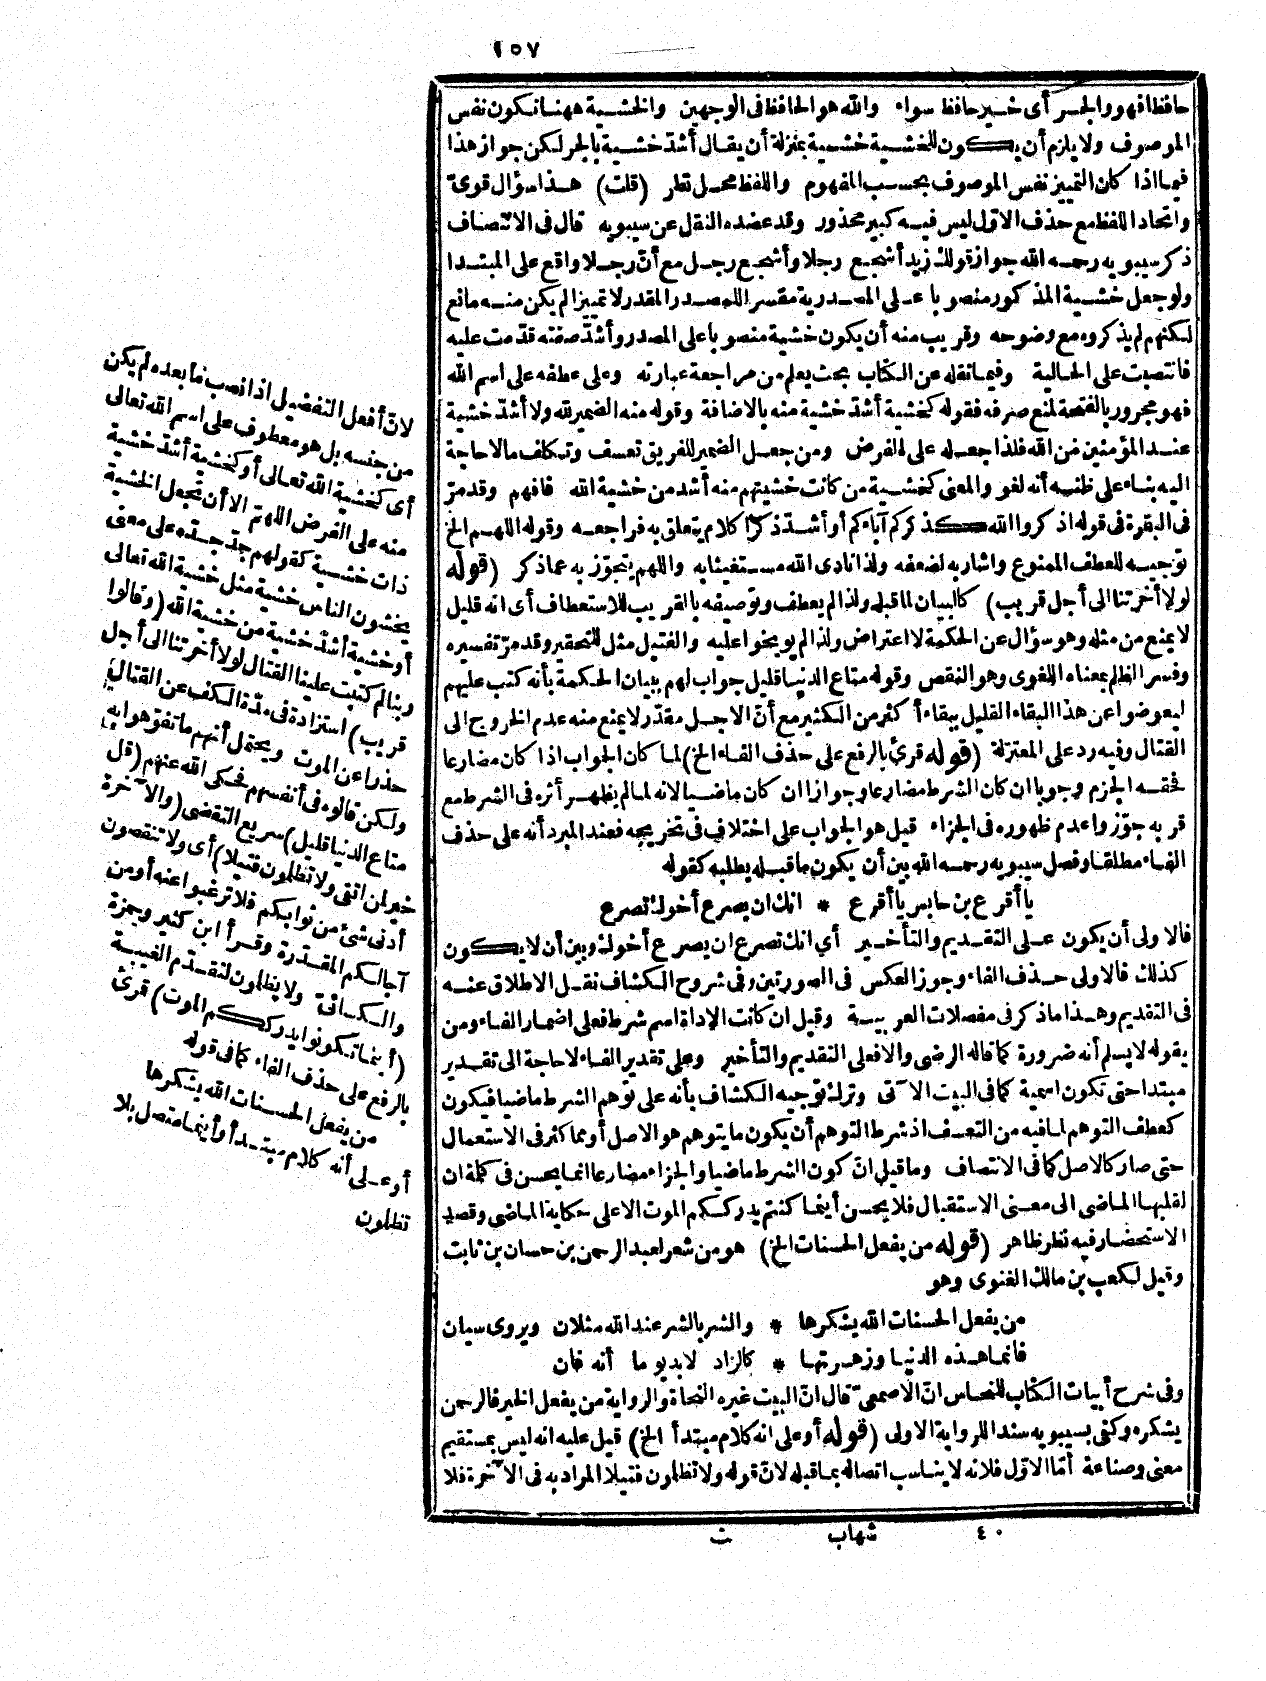 ١٥٧
حافظا فهو والجر أى خير حافظ سواء والله هو الحافظ فى الوجهين والخشية ههنا تكون نفس
الموصوف ولا يلزم أن يكون للخشية خشية بمنزلة أن يقال أشدّ خشية بالجر لكن جواز هذا
فيما اذا كان التمييز نفس الموصوف بحسب المفهوم واللفظ محل نظر (قلت) هذا سؤال قوىّ
واتحاد اللفظ مع حذف الاوّل ليس فيه كبير محذور وقد عضده النقل عن سيبويه قال فى الانتصاف
ذكر سيبويه رحمه الله جواز قولك زيد أشجع رجلا وأشجع رجل مع أنّ رجلا واقع على المبتدا
ولو جعل خشية المذكور منصوبا على المصدرية مفسرا للمصدر المقدر لا تمييزا لم يكن منه مانع
لكنهم لم يذكروه مع وضوحه وقريب منه أن يكون خشية منصوبا على المصدر وأشدّ صفته قدّمت عليه
فانتصبت على الحالية وفيما نقله عن الكتاب بحث يعلم من مراجعة عبارته وعلى عطفه على اسم الله
فهو مجرور بالفتحة لمنع صرفه فقوله كخشية أشدّ خشية منه بالاضافة وقوله منه الضمير لله ولا أشدّ خشية
عند المؤمنين من الله فلذا جعله على الفرض ومن جعل الضمير للفريق تعسف وتكلف ما لا حاجة
اليه بناء على ظنه أنه لغو والمعنى كخشية من كانت خشيتهم منه أشد من خشية الله فافهم وقد مرّ
فى البقرة فى قوله اذكروا الله كذكركم آباءكم أو أشدّ ذكرا كلام يتعلق به فراجعه وقوله اللهم الخ
توجيه للعطف الممنوع واشار به لضعفه ولذا نادى الله مستغيثا به واللهم يتجوّز به عما ذكر (قوله
لولا أخرتنا الى أجل قريب) كالبيان لما قبله ولذا لم يعطف وتوصيفه بالقريب للاستعطاف أى انه قليل
لا يمنع من مثله وهو سؤال عن الحكمة لا اعتراض ولذا لم يوبخوا عليه والفتيل مثل للتحقير وقد مرّ تفسيره
وفسر الظلم بمعناه اللغوى وهو النقص وقوله متاع الدنيا قليل جواب لهم ببيان الحكمة بأنه كتب عليهم
ليعوضوا عن هذا البقاء القليل ببقاء أكثر من الكثير مع أنّ الاجل مقدّر لا يمنع منه عدم الخروج الى
القتال وفيه رد على المعتزلة (قوله قرئ بالرفع على حذف الفاء الخ) لما كان الجواب اذا كان مضارعا
فحقه الجزم وجوبا ان كان الشرط مضارعا وجوازا ان كان ماضيا لانه لما لم يظهر أثره فى الشرط مع
قربه جوّز واعدم ظهوره فى الجزاء قيل هو الجواب على اختلاف فى تخريجه فعند المبرد أنه على حذف
الفاء مطلقا وفصل سيبويه رحمه الله بين أن يكون ما قبله يطلبه كقوله
يا أقرع بن حابس يا أقرع * انك ان يصرع أخوك تصرع
فالاولى أن يكون على التقديم والتأخير أي انك تصرع ان يصرع أخوك وبين أن لا يكون
كذلك فالاولى حذف الفاء وجوز العكس فى الصورتين وفى شروح الكشاف نقل الاطلاق عنه
فى التقديم وهذا ما ذكر فى مفصلات العربية وقيل ان كانت الإداة اسم شرط فعلى اضمار الفاء ومن
يقوله لا يسلم أنه ضرورة كما قاله الرضى والا فعلى التقديم والتأخير وعلى تقدير الفاء لا حاجة الى تقدير
مبتدا حتى تكون اسمية كما فى البيت الآتى وترك توجيه الكشاف بأنه على توّهم الشرط ماضيا فيكون
كعطف التوهم لما فيه من التعسف اذ شرط التوهم أن يكون ما يتوهم هو الاصل أو مما كثر فى الاستعمال
حتى صار كالاصل كما فى الانتصاف وما قيل انّ كون الشرط ماضيا والجزاء مضارعا انما يحسن فى كلمة ان
لقلبها الماضى الى معنى الاستقبال فلا يحسن أينما كنتم يدرككم الموت الا على حكاية الماضى وقصد
الاستحضار فيه نظر ظاهر (قوله من يفعل الحسنات الخ) هو من شعر لعبد الرحمن بن حسان بن ثابت
وقيل لكعب بن مالك الغنوى وهو
من يفعل الحسنات الله يشكرها * والشر بالشر عند الله مثلان ويروى سيان
فانما هذه الدنيا وزهرتها * كالزاد لا بد يوما أنه فان
وفى شرح أبيات الكتاب للنحاس انّ الاصمعىّ قال انّ البيت غيره النحاة والرواية من يفعل الخير فالرحمن
يشكره وكفى بسيبويه سندا للرواية الاولى (قوله أو على انه كلام مبتدأ الخ) قيل عليه انه ليس بمستقيم
معنى وصناعة أمّا الاوّل فلانه لا يناسب اتصاله بما قبله لانّ قوله ولا تظلمون فتيلا المراد به فى الآخرة فلا
٤٠ شهاب ث
لانّ أفعل التفضيل اذا نصب ما بعده لم يكن
من جنسه بل هو معطوف على اسم الله تعالى
أى كخشية الله تعالى أو كخشية أشدّ خشية
منه على الفرض اللهمّ الا أن تجعل الخشية
ذات خشية كقولهم جدّ جدّه على معنى
يخشون الناس خشية مثل خشية الله تعالى
أو خشية أشدّ خشية من خشية الله (وقالوا
ربنا لم كتبت علينا القتال لولا أخرتنا الى أجل
قريب) استزادة فى مدّة الكف عن القتال
حذرا عن الموت ويحتمل أنهم ما تفوّهوا به
ولكن قالوه فى أنفسهم فحكى الله عنهم (قل
متاع الدنيا قليل) سريع التقضى (والآخرة
خير لمن اتقى ولا تظلمون فتيلا) أى ولا تنقصون
أدنى شئ من ثوابكم فلا ترغبوا عنه أو من
آجالكم المقدّرة وقرأ ابن كثير وحمزة
والكسائىّ ولا يظلمون لتقدّم الغيبة
(أينما تكونوا يدرككم الموت) قرئ
بالرفع على حذف الفاء كما فى قوله
من يفعل الحسنات الله يشكرها
أو على أنه كلام مبتدأ وأينما متصل بلا
تظلمون